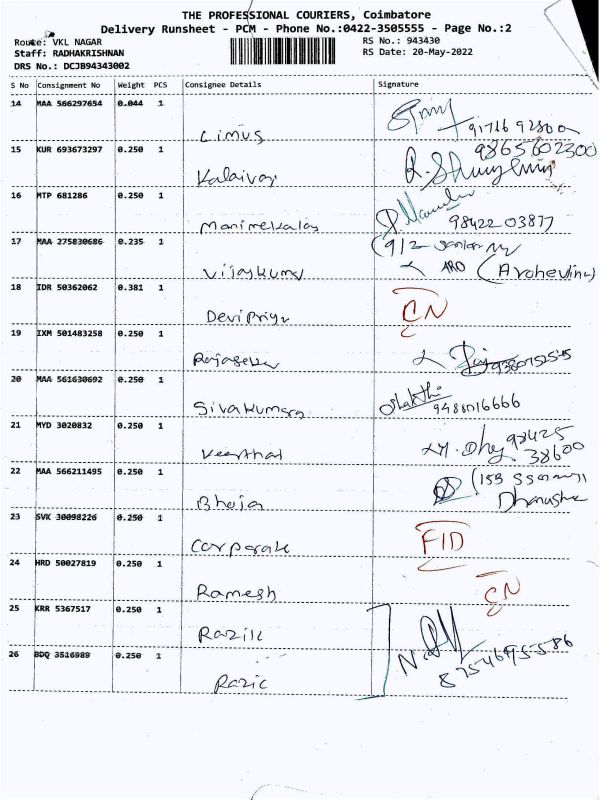 THE PROFESSIONAL COURIERS, Coimbatore
Delivery Runsheet - PCM - Phone No.:0422-3505555 - Page No.:2
Route: VKL NAGAR
RS No.: 943430
Staff: RADHAKRISHNAN
RS Date: 20-May-2022
DRS No.: DCJB94343002
S No Consignment No Weight PCS Consignee Details Signature
14 MAA 566297654 0.044 1
Limus
15 KUR 693673297 0.250 1 9865602300
Kalaivani
16 MTP 681286 0.250 1
Manimekalai 98422 03877
17 MAA 275830686 0.235 1
Vijaykumar ARO
18 IDR 50362062 0.381 1
Devipriya CN
19 IXM 501483258 0.250 1
Rajasekar
20 MAA 561630692 0.250 1 Shakthi
Sivakumara 9488016666
21 MYD 3020832 0.250 1 98425
Veerthal 38600
22 MAA 566211495 0.250 1
Bhoja
23 SVK 30098226 0.250 1
Corporate FID
24 HRD 50027819 0.250 1
Ramesh CN
25 KRR 5367517 0.250 1
Razik
26 BDQ 3516989 0.250 1
Razic